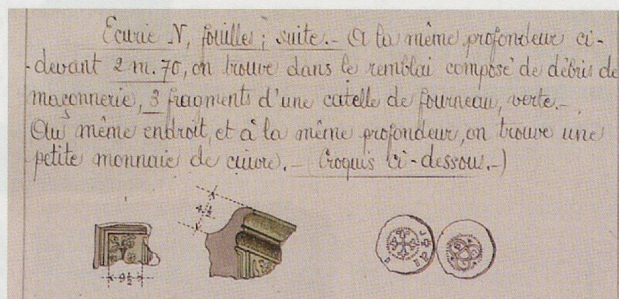 Écurie N, fouilles; suite.- A la même profondeur ci-
-devant 2 m. 70, on trouve dans le remblai composé de débris de
maçonnerie, 3 fragments d'une catelle de fourneau, verte.-
Au même endroit, et à la même profondeur, on trouve une
petite monnaie de cuivre.- (Croquis ci-dessous.-)
9½